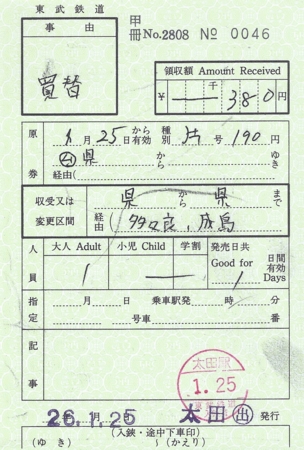 東武鉄道
甲
冊No.2808 № 0046
事由
買替
領収額 Amount Received
千
¥ ― 380 円
原券
1月25日から有効 種別 号 190円
県 から ゆき
経由( )
収受又は変更区間
県から県まで
経由 多々良、成島
人員
大人 Adult 小児 Child 学割
1 ―
発売日共 Good for 1 日間有効 Days
指定
月 日 乗車駅発 時 分
号車 番
記事
太田駅
1.25
26.1.25 太田出 発行
(入鋏・途中下車印)
(ゆき) ~(かえり)